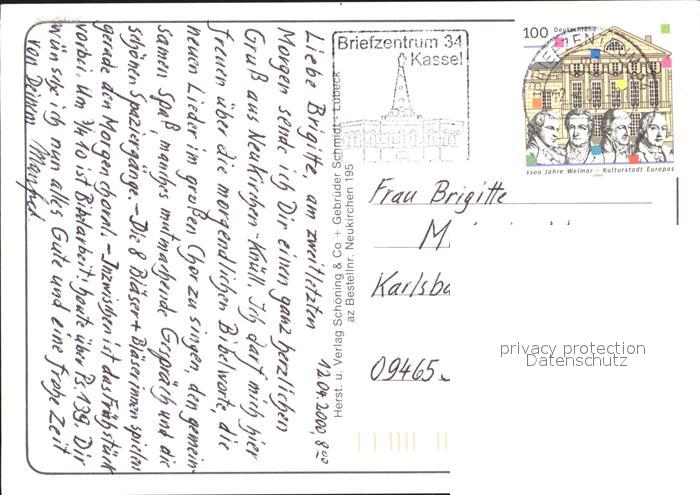 12.04.2000, 8⁰⁰
Liebe Brigitte, am zweitletzten
Morgen sende ich Dir einen ganz herzlichen
Gruß aus Neukirchen-Knüll. Ich darf mich hier
freuen über die morgendlichen Bibelworte, die
neuen Lieder im großen Chor zu singen, den gemein-
samen Spaß manches mutmachende Gespräch und die
schönen Spaziergänge. – Die 8 Bläser + Bläserinnen spielen
gerade den Morgenchoral. – Inzwischen ist das Frühstück
vorbei. Um ¾ 10 ist Bibelarbeit, heute über Ps. 139. Dir
wünsche ich nun alles Gute und eine frohe Zeit
von Deinem Manfred.
Herst. u. Verlag Schöning & Co + Gebrüder Schmidt - Lübeck
az Bestellnr. Neukirchen 195
Briefzentrum 34
Kassel
100 Deutschland
1100 Jahre Weimar - Kulturstadt Europas
Frau Brigitte
M
Karlsba
09465
privacy protection
Datenschutz